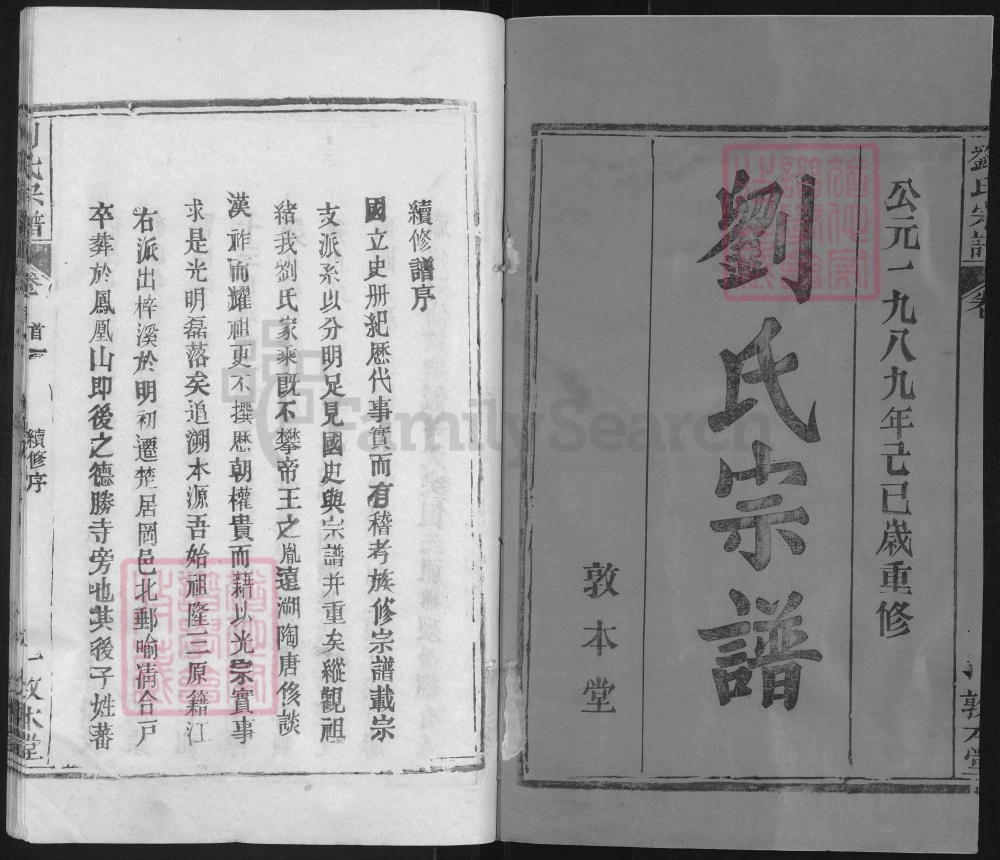 公元一九八九年己巳歲重修
劉氏宗譜
敦本堂
劉氏宗譜
卷
敦本堂
續修譜序
國立史册紀歷代事實而有稽考族修宗譜載宗
支派系以分明足見國史與宗譜并重矣縱觀祖
緒我劉氏家乘旣不攀帝王之胤遠溯陶唐侈談
漢祚而耀祖更不撰歷朝權貴而藉以光宗實事
求是光明磊落矣追溯本源吾始祖隆三原籍江
右派出梓溪於明初遷楚居岡邑北鄉喻淸合戸
卒葬於鳳凰山即後之德勝寺旁也其後子姓蕃
氏宗譜
卷首
續修序
敦本堂
FamilySearch